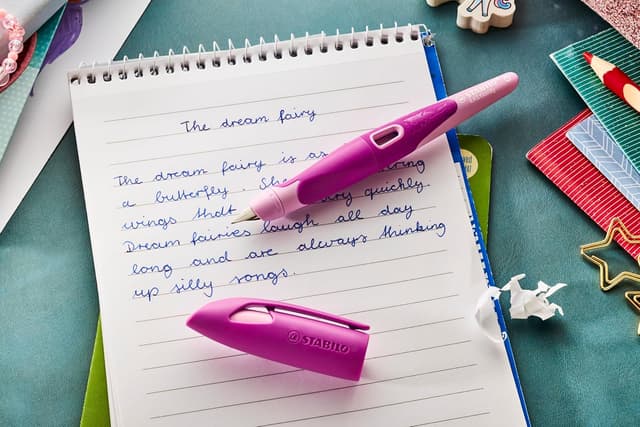 The dream fairy
The dream fairy is as
a butterfly. She
wings that very quickly.
Dream fairies laugh all day
long and are always thinking
up silly songs.
STABILO
STABILO